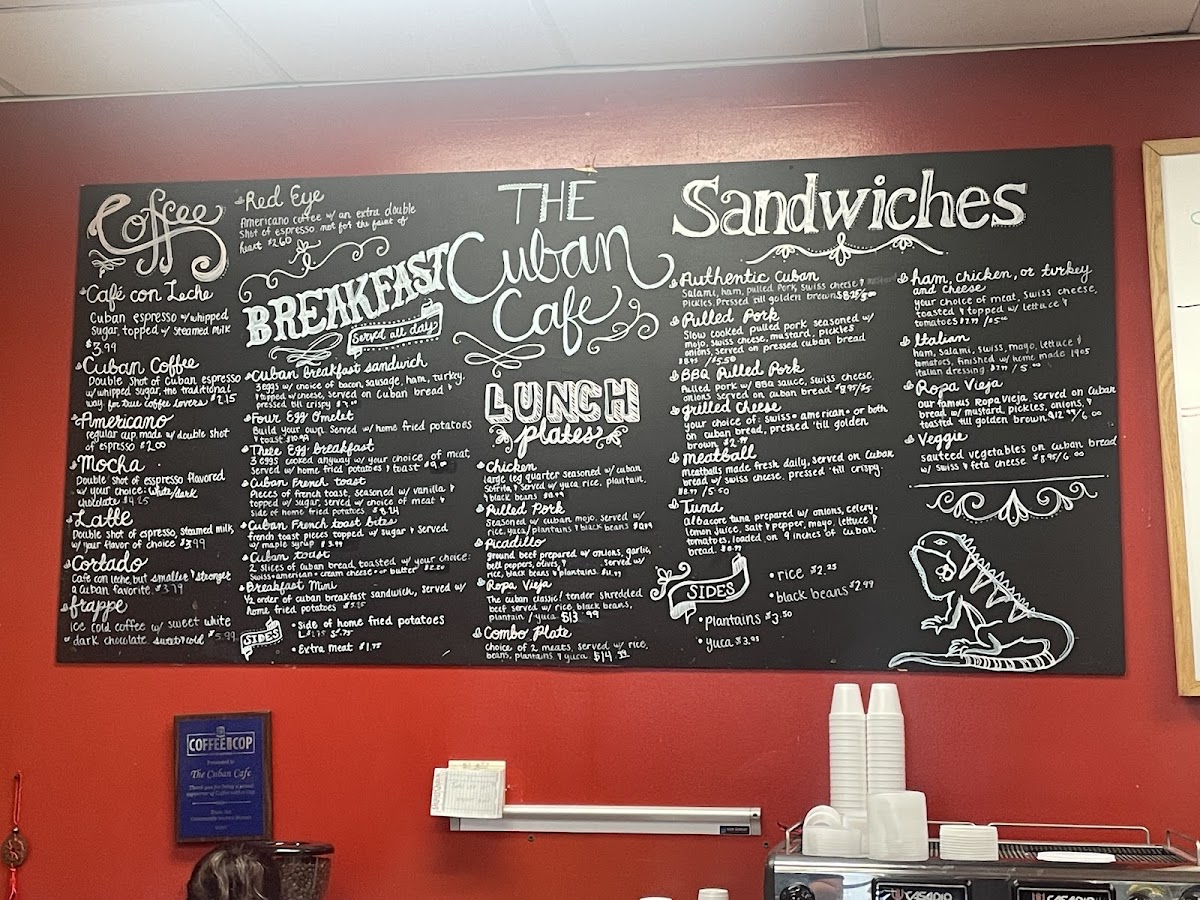 Coffee
Café con Leche
Cuban espresso w/ whipped
sugar, topped w/ steamed milk
$3.99
Cuban Coffee
Double shot of Cuban espresso
w/ whipped sugar, the traditional
way for true coffee lovers $2.15
Americano
regular cup made w/ double shot
of espresso $2.00
Mocha
Double shot of espresso flavored
w/ your choice: white/dark
chocolate $4.25
Latte
Double shot of espresso, steamed milk,
w/ your flavor of choice $3.99
Cortado
Cafe con leche, but smaller & stronger
a Cuban favorite. $3.79
frappe
Ice cold coffee w/ sweet white
or dark chocolate sweet & cold $5.99
Red Eye
Americano coffee w/ an extra double
shot of espresso not for the faint of
heart $2.60
BREAKFAST
Served all day
Cuban Breakfast sandwich
3 eggs w/ choice of bacon, sausage, ham, turkey,
& topped w/ cheese, served on Cuban bread &
pressed till crispy
Four Egg Omelet
Build your own. Served w/ home fried potatoes
& toast $10.99
Three Egg Breakfast
3 eggs cooked anyway w/ your choice of meat
served w/ home fried potatoes & toast
Cuban French toast
Pieces of french toast, seasoned w/ vanilla &
topped w/ sugar, served w/ choice of meat &
side of home fried potatoes.
Cuban French toast bites
french toast pieces topped w/ sugar & served
w/ maple syrup $3.99
Cuban toast
2 slices of cuban bread, toasted w/ your choice:
Swiss • american • cream cheese • or butter
Breakfast Mini
1/2 order of cuban breakfast sandwich, served w/
home fried potatoes
SIDES
• Side of home fried potatoes
• Extra meat $1.75
THE
Cuban
Cafe
LUNCH
plates
Chicken
large leg quarter seasoned w/ cuban
sofrito, & served w/ yuca, rice, plantain,
& black beans
Pulled Pork
Seasoned w/ cuban mojo, served w/
rice, yuca/plantains & black beans
Picadillo
ground beef prepared w/ onions, garlic,
bell peppers, olives, & served w/
rice, black beans & plantains.
Ropa Vieja
The cuban classic! tender shredded
beef served w/ rice, black beans,
plantain / yuca $13.99
Combo Plate
choice of 2 meats, served w/ rice,
beans, plantains & yuca $14
Sandwiches
Authentic Cuban
Salami, ham, pulled pork, swiss cheese &
pickles. Pressed 'till golden brown
Pulled Pork
Slow cooked pulled pork seasoned w/
mojo, swiss cheese, mustard, pickles
onions, served on pressed cuban bread
/5.50
BBQ Pulled Pork
Pulled pork w/ BBQ sauce, swiss cheese,
onions served on cuban bread
grilled cheese
your choice of: swiss • american • or both
on cuban bread, pressed 'till golden
brown
meatball
Meatballs made fresh daily, served on Cuban
bread w/ swiss cheese, pressed 'till crispy.
/5.50
Tuna
Albacore tuna prepared w/ onions, celery,
lemon juice, salt & pepper, mayo, lettuce &
tomatoes, loaded on 9 inches of cuban
bread.
SIDES
• rice $2.25
• black beans $2.99
• Plantains $3.50
• yuca
ham, chicken, or turkey
and cheese
your choice of meat, swiss cheese,
toasted & topped w/ lettuce &
tomatoes
Italian
ham, salami, swiss, mayo, lettuce &
tomatoes, finished w/ home made 1905
Italian dressing
Ropa Vieja
our famous Ropa Vieja, served on Cuban
bread w/ mustard, pickles, onions, &
toasted till golden brown
Veggie
sauteed vegetables on cuban bread
w/ swiss & feta cheese
COFFEE COP
Presented to
The Cuban Cafe
CASADIO
CASADIO